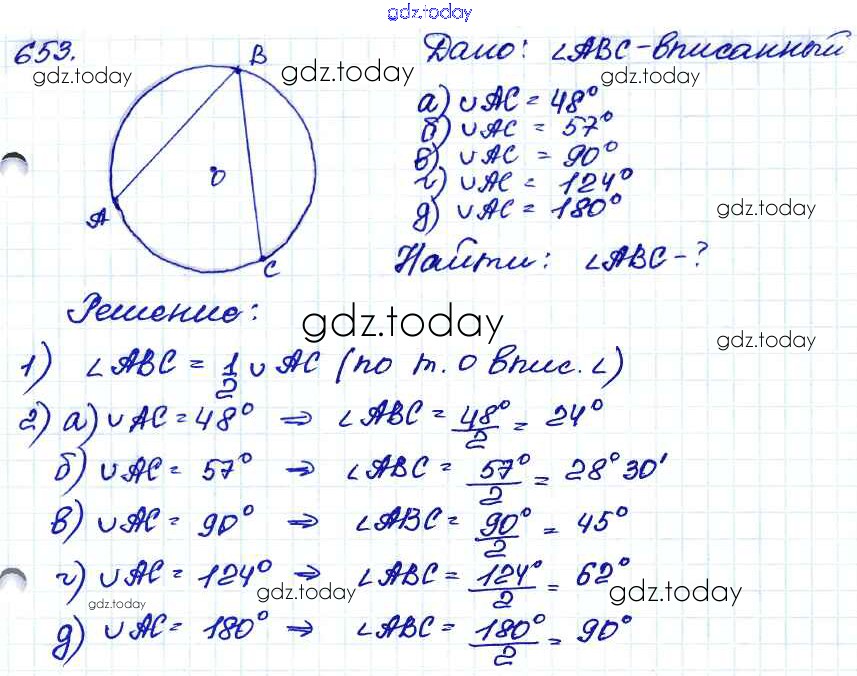 gdz.today
653.
B
Дано: ∠ABC - вписанный
gdz.today
gdz.today
а) ∪AC = 48°
б) ∪AC = 57°
в) ∪AC = 90°
г) ∪AC = 124°
gdz.today
д) ∪AC = 180°
O
A
C
gdz.today
Найти: ∠ABC - ?
Решение:
gdz.today
gdz.today
1) ∠ABC = 1/2 ∪AC (по т. о впис. ∠)
2) а) ∪AC = 48° ⇒ ∠ABC = 48°/2 = 24°
б) ∪AC = 57° ⇒ ∠ABC = 57°/2 = 28° 30'
в) ∪AC = 90° ⇒ ∠ABC = 90°/2 = 45°
г) ∪AC = 124° ⇒ ∠ABC = 124°/2 = 62°
gdz.today
gdz.today
gdz.today
д) ∪AC = 180° ⇒ ∠ABC = 180°/2 = 90°